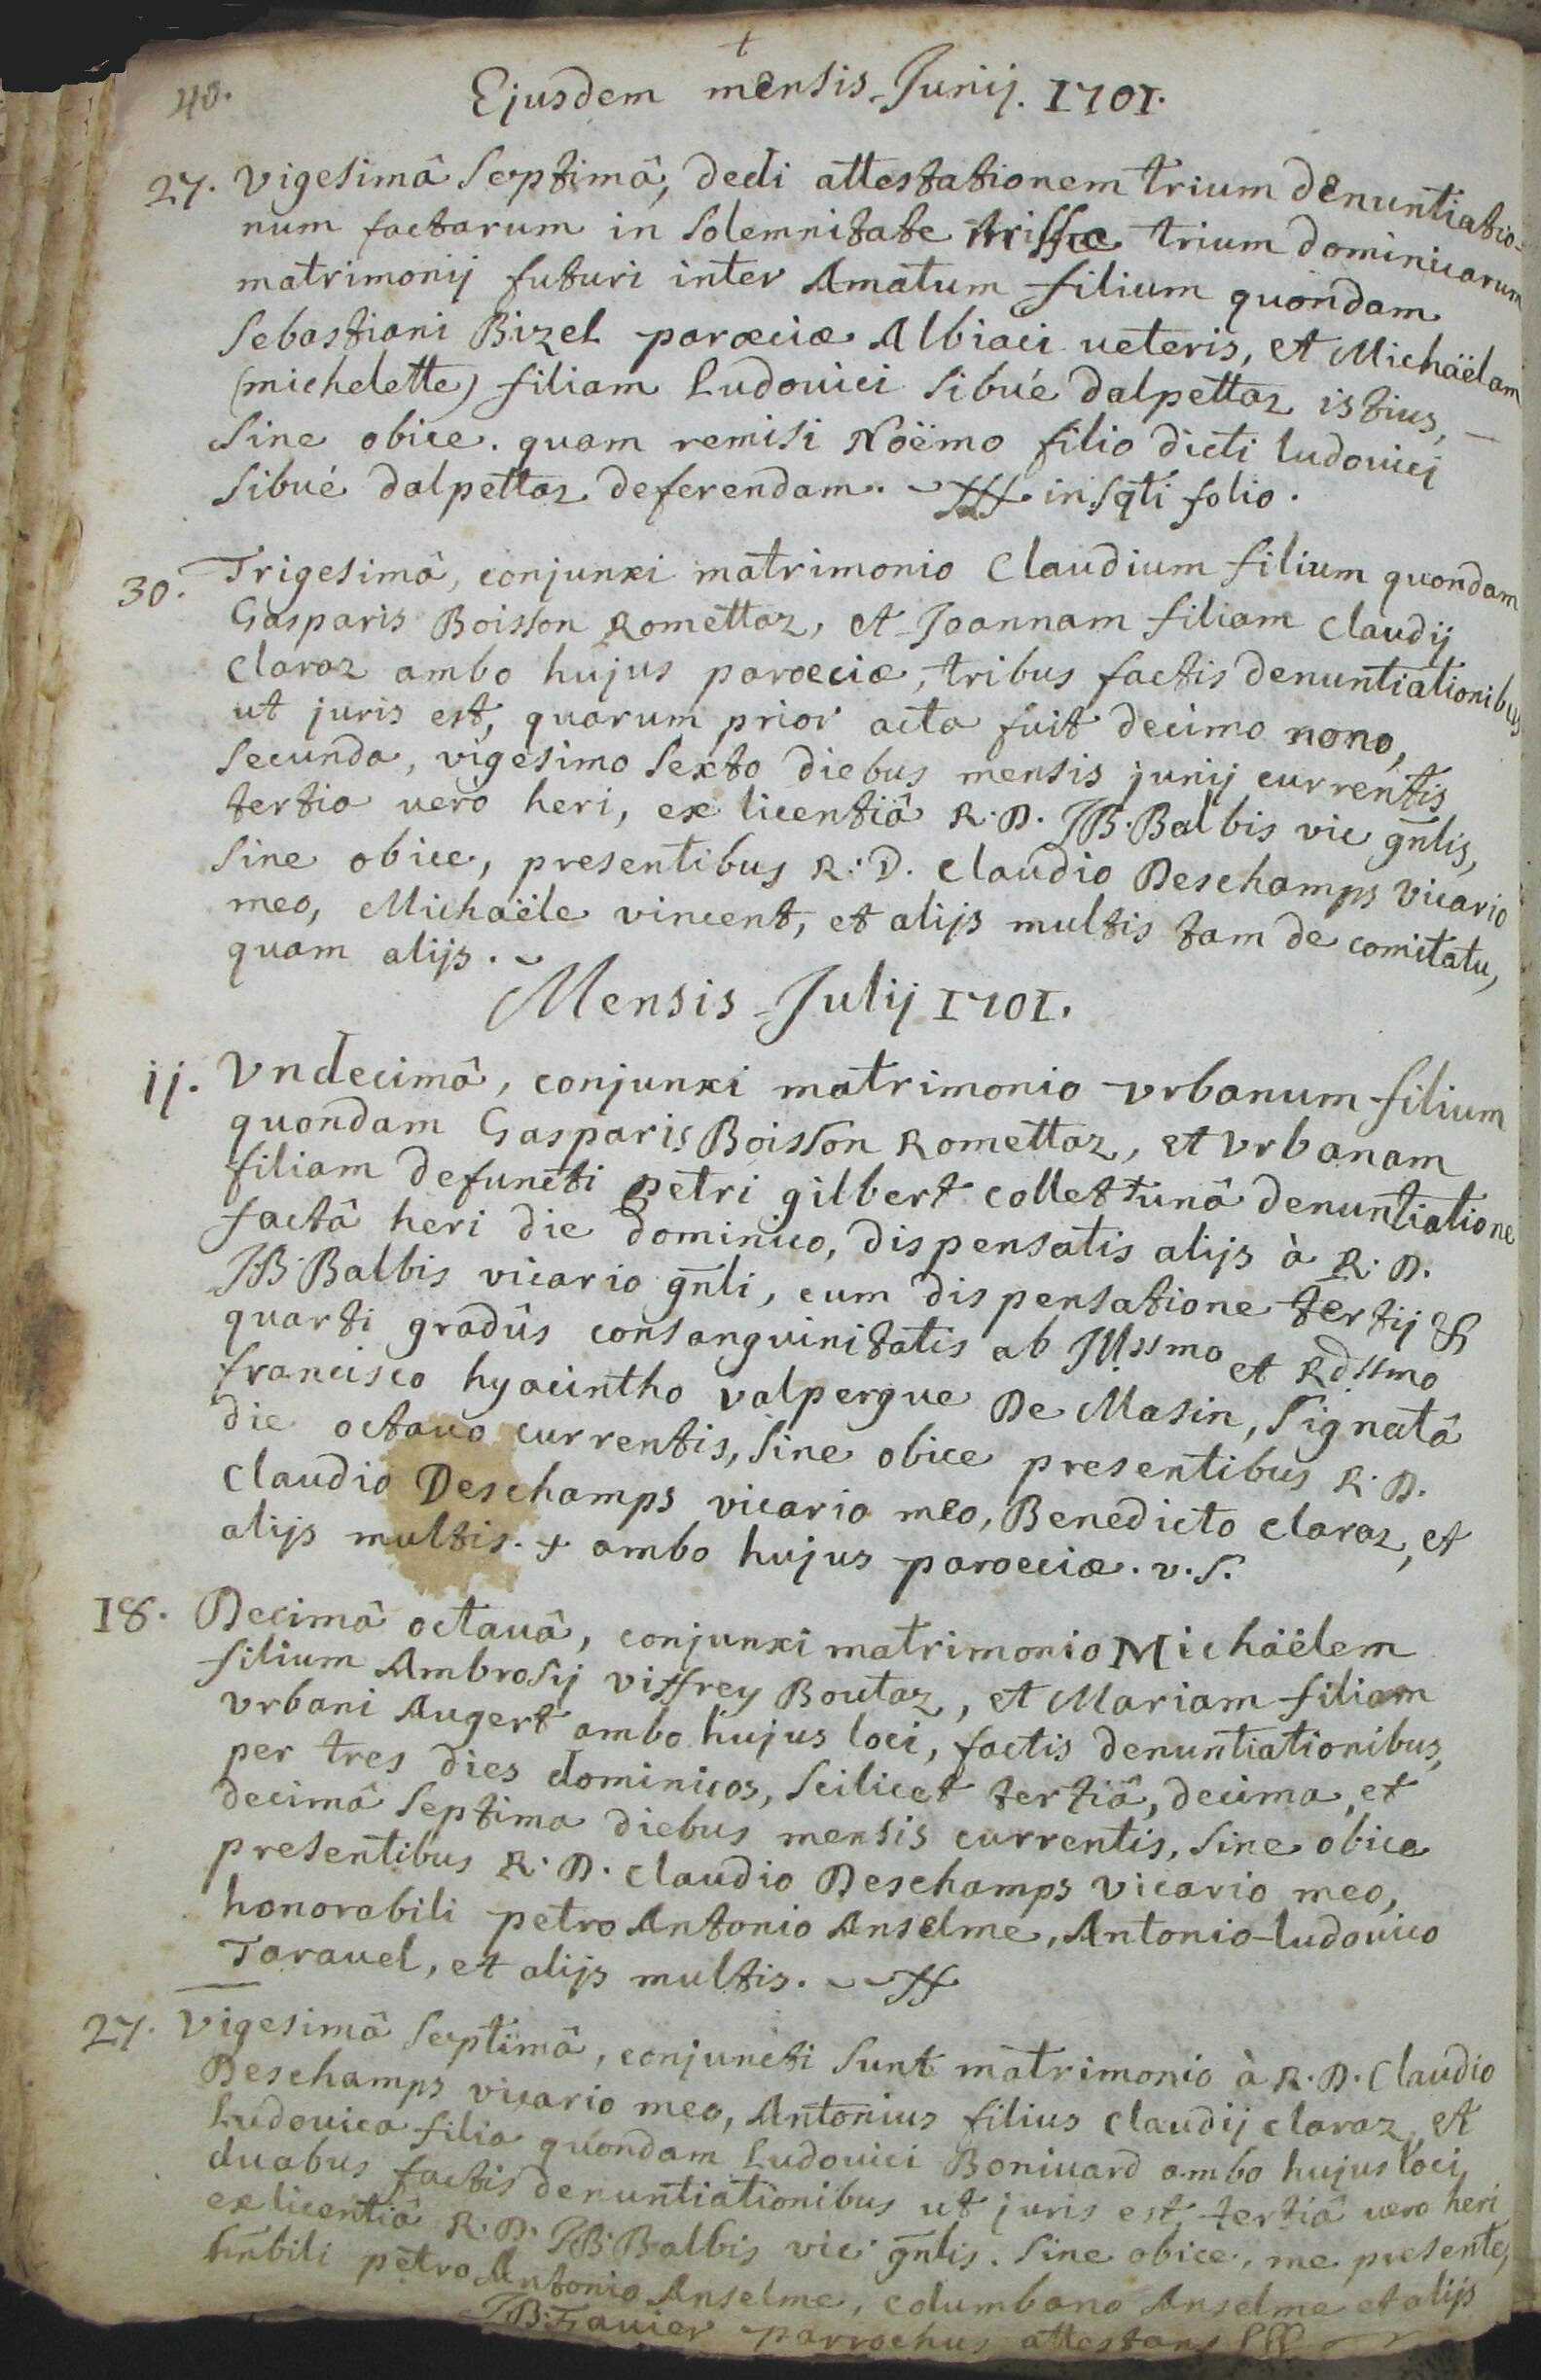 40.
+
Ejusdem mensis Junij. 1701.
27. Vigesimâ Septimâ, dedi attestationem trium denuntiatio-
num factarum in Solemnitate missæ trium dominicarum
matrimonij futuri inter Amatum filium quondam
Sebastiani Bizel parœciæ Albiaci veteris, et Michaëlam
(michelette) filiam Ludovici Sibué dalpettaz istius,
Sine obice. quam remisi Noëmo filio dicti ludovici
Sibué dalpettaz deferendam. in sqti folio.
30. Trigesimâ, conjunxi matrimonio Claudium filium quondam
Gasparis Boisson Romettaz, et Joannam filiam Claudij
Claraz ambo hujus parœciæ, tribus factis denuntiationibus
ut juris est, quarum prior acta fuit decimo nono,
Secunda, vigesimo Sexto diebus mensis junij currentis
tertia vero heri, ex licentiâ R. D. JB. Balbis vic gnlis,
Sine obice, presentibus R. D. Claudio Deschamps Vicario
meo, Michaële vincent, et alijs multis tam de comitatu,
quam alijs.
Mensis Julij 1701.
11. Vndecimâ, conjunxi matrimonio vrbanum filium
quondam Gasparis Boisson Romettaz, et vrbanam
filiam defuncti petri gilbert collet + unâ denuntiatione
factâ heri die dominico, dispensatis alijs à R. D.
JB. Balbis vicario gnli, cum dispensatione tertij &
quarti gradûs consanguinitatis ab Illssmo et Rdssmo
francisco hyacintho valpergue De Masin, Signatâ
die octavo currentis, Sine obice presentibus R. D.
Claudio Deschamps vicario meo, Benedicto claraz, et
alijs multis. + ambo hujus parœciæ. v. s.
18. Decimâ octavâ, conjunxi matrimonio Michäëlem
filium Ambrosij viffrey Boutaz, et Mariam filiam
vrbani Augert ambo hujus loci, factis denuntiationibus,
per tres dies dominicos, Scilicet tertiâ, decima, et
decimâ Septima diebus mensis currentis, Sine obice
presentibus R. D. Claudio Deschamps Vicario meo,
honorabili petro Antonio Anselme, Antonio-ludovico
Taravel, et alijs multis.
27. Vigesimâ Septimâ, conjuncti Sunt matrimonio à R. D. Claudio
Deschamps vicario meo, Antonius filius Claudij claraz, et
Ludovica filia quondam Ludovici Bonivard ambo hujus loci,
duabus factis denuntiationibus ut juris est, tertiâ vero heri
ex licentiâ R. D. JB. Balbis vic gnlis. Sine obice, me presente,
hnbili petro Antonio Anselme, columbano Anselme et alijs
JB. Favier parrochus attestans